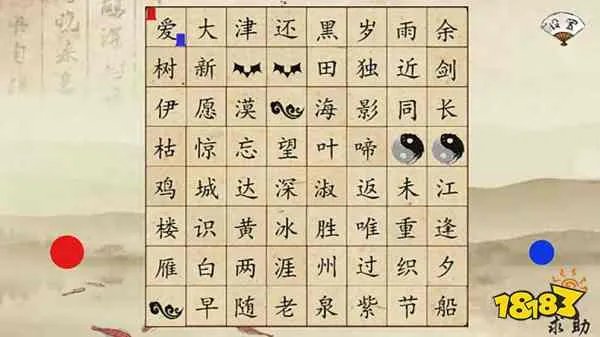 爱大津还黑岁雨余
树新田独近剑
伊愿漠海影同长
枯惊忘望叶啼
鸡城达深淑返未江
楼识黄冰胜唯重逢
雁白两涯州过织夕
早随老泉紫节船
设置
18183
求助